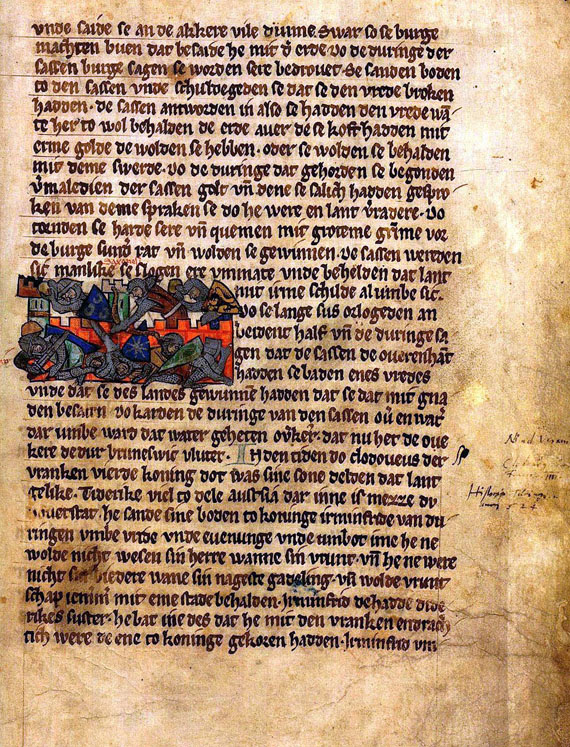 vnde saide se an de akkere vile dunne. Swar so se burge
machten buen dat besaide he mit d' erde. Do de duringe der
sassen burge sagen se worden sere bedrouet. Se sanden boden
to den sassen vnde schuldegeden se dat se den vrede broken
hadden. de sassen antworden in also se hadden den vrede wā
te her to wol behalden de erde auer de se koft hadden mit
erme golde de wolden se hebben. oder se wolden se behalden
mit deme swerde. Do de duringe dat gehorden se begonden
v'maledien der sassen golt vn̄ dene se salich hadden gespro
ken van deme spraken se do he were en lant v'radere. Do
se harde sere vn̄ quemen mit groteme grīme vor
de burge rat vn̄ wolden se gewinnen. De sassen werden
sic manlike se slogen ere vnmate vnde behelden dat lant
mit irme schilde al vmbe sic.
Do se lange sus orlogeden an
beident half vn̄ de duringe sa
gen dat de sassen de ouerenhāt
hadden se baden enes vredes
vnde dat se des landes gewinne hadden dat se dar mit gna
den besatin. Do karden de duringe van den sassen
dar vmbe ward dat water geheten dat nu her de oue
kere de dur bruneswic vlutet. In den tiden do clodoueus der
vranken vierde koning dot was sine sone delden dat lant
gelike. Tiderike viel to dele austria dar inne is mezze
he sande sine boden to koninge irminfride van du
ringen vmbe vrede vnde euenunge vnde umbot ime he ne
wolde nicht wesen sin herre wanne sin vrunt. vn̄ he ne were
nicht sin biedere wane sin nageste gadeling. vn̄ wolde vrunt
schap iemm' mit eme stade behalden. Irminfrid de hadde dide
rikes suster. he bat ine des dat he mit den vranken endrach
tich were de ene to koninge gekoren hadden. Irminfrid vm